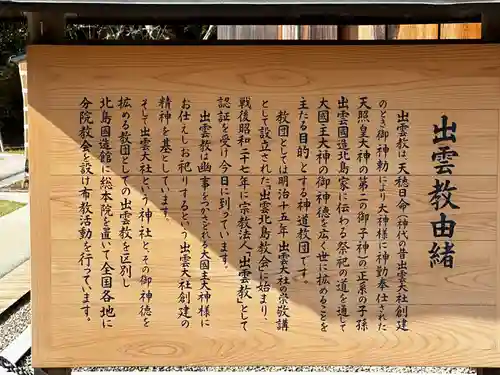 出雲教由緒
出雲教は、天穂日命（神代の昔出雲大社創建
のとき御神勅により大神様に神勤奉仕された
天照皇大神の第二の御子神）の正系の子孫
出雲國造北島家に伝わる祭祀の道を通して
大國主大神の御神徳を広く世に拡めることを
主たる目的とする神道教団です。
教団としては明治十五年出雲大社の崇敬講
として設立された「出雲北島教会」に始まり、
戦後昭和二十七年に宗教法人「出雲教」として
認証を受け今日に到っています。
出雲教は幽事をつかさどられる大國主大神様に
お仕えしお祀りするという出雲大社創建の
精神を基としています。
そして出雲大社という神社と、その御神徳を
拡める教団としての出雲教を区別し
北島國造館に総本院を置いて全国各地に
分院教会を設け布教活動を行っています。